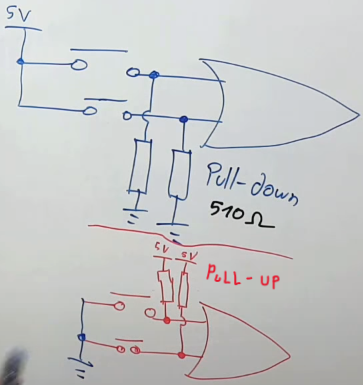 5V
Pull-down
510Ω
5V 5V
PULL-UP